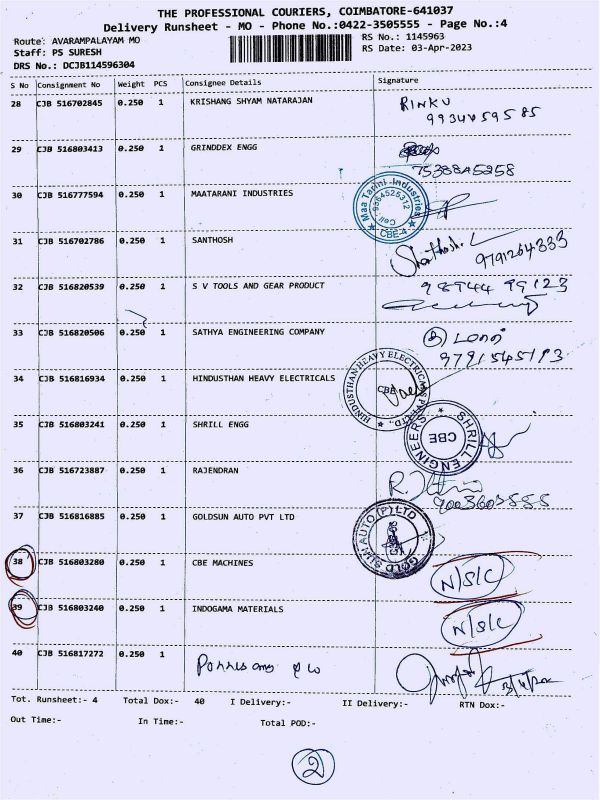 THE PROFESSIONAL COURIERS, COIMBATORE-641037
Delivery Runsheet - MO - Phone No.:0422-3505555 - Page No.:4
Route: AVARAMPALAYAM MO
RS No.: 1145963
Staff: PS SURESH
RS Date: 03-Apr-2023
DRS No.: DCJB114596304
S No Consignment No Weight PCS Consignee Details Signature
28 CJB 516702845 0.250 1 KRISHANG SHYAM NATARAJAN RINKU
29 CJB 516803413 0.250 1 GRINDDEX ENGG
30 CJB 516777594 0.250 1 MAATARANI INDUSTRIES Maa Tarini Industries
Cell: 9364525312
CBE-4
31 CJB 516702786 0.250 1 SANTHOSH 9791264333
32 CJB 516820539 0.250 1 S V TOOLS AND GEAR PRODUCT 98944 99123
33 CJB 516820506 0.250 1 SATHYA ENGINEERING COMPANY
9791545193
34 CJB 516816934 0.250 1 HINDUSTHAN HEAVY ELECTRICALS HINDUSTHAN HEAVY ELECTRICALS PVT LTD.,
CBE
35 CJB 516803241 0.250 1 SHRILL ENGG SHRILL ENGINEERS
CBE
36 CJB 516723887 0.250 1 RAJENDRAN
37 CJB 516816885 0.250 1 GOLDSUN AUTO PVT LTD GOLD SUN AUTO (P) LTD
38 CJB 516803280 0.250 1 CBE MACHINES N/S/C
39 CJB 516803240 0.250 1 INDOGAMA MATERIALS N/S/C
40 CJB 516817272 0.250 1
Tot. Runsheet:- 4 Total Dox:- 40 I Delivery:- II Delivery:- RTN Dox:-
Out Time:- In Time:- Total POD:-
2